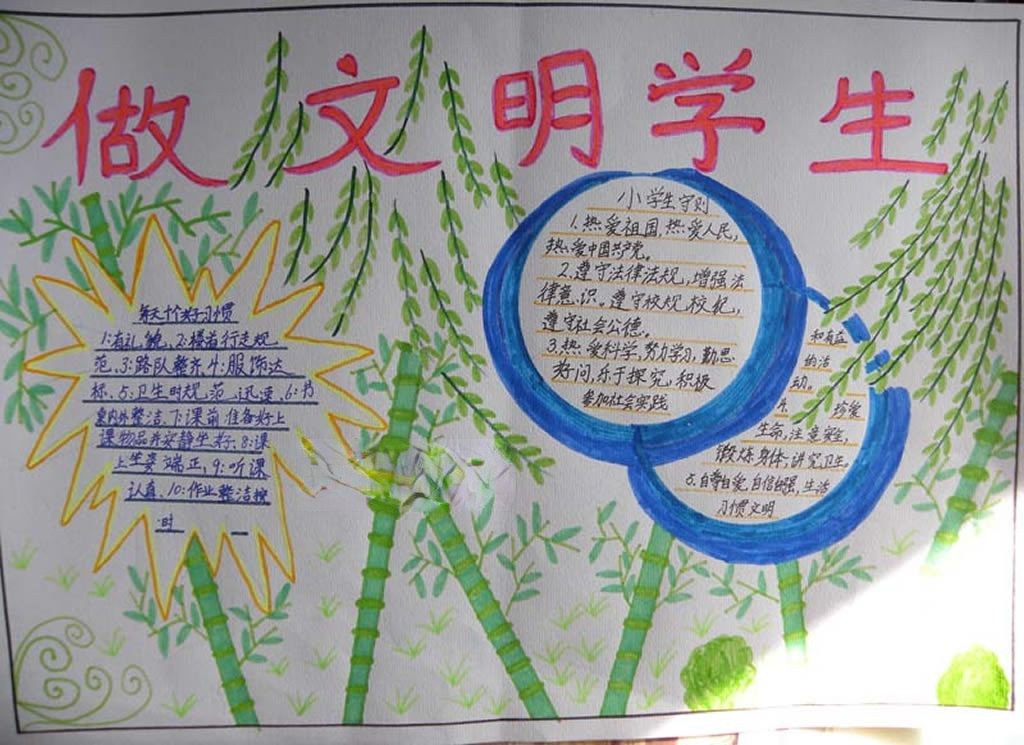 做文明学生
每天十个好习惯
1:有礼貌、2:楼道行走规
范、3:路队整齐、4:服饰达
标、5:卫生时规范迅速、6:书
桌内外整洁、7:课前准备好上
课物品并安静坐好、8:课
上坐姿端正、9:听课
认真、10:作业整洁按
时
小学生守则
1.热爱祖国,热爱人民,
热爱中国共产党。
2.遵守法律法规,增强法
律意识。遵守校规校纪,
遵守社会公德。
3.热爱科学,努力学习,勤思
好问,乐于探究,积极
参加社会实践
和有益
的活
动。
4. 珍爱
生命,注意安全,
锻炼身体,讲究卫生。
5.自尊自爱,自信自强,生活
习惯文明